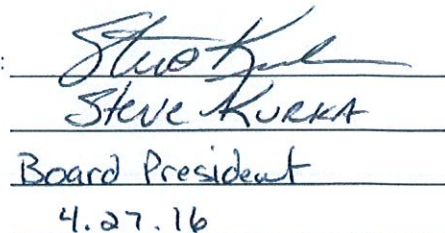 :
Steve Kurka
Steve Kurka
Board President
4.27.16